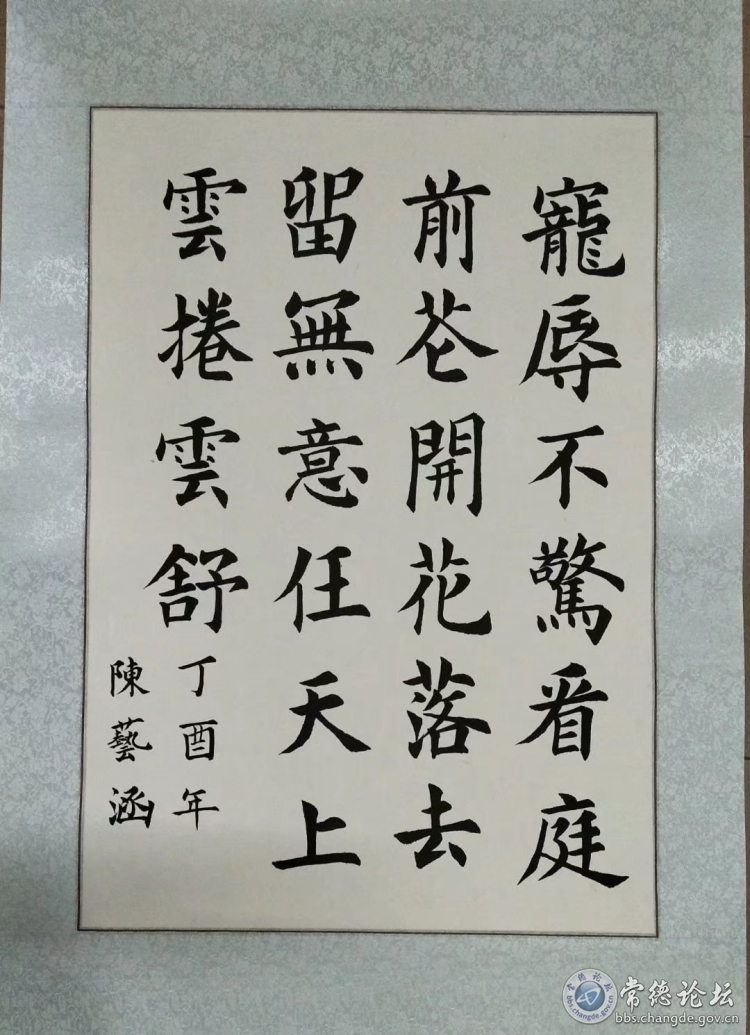 寵辱不驚看庭
前花開花落去
留無意任天上
雲捲雲舒
丁酉年
陳藝涵
常德论坛
bbs.changde.gov.cn